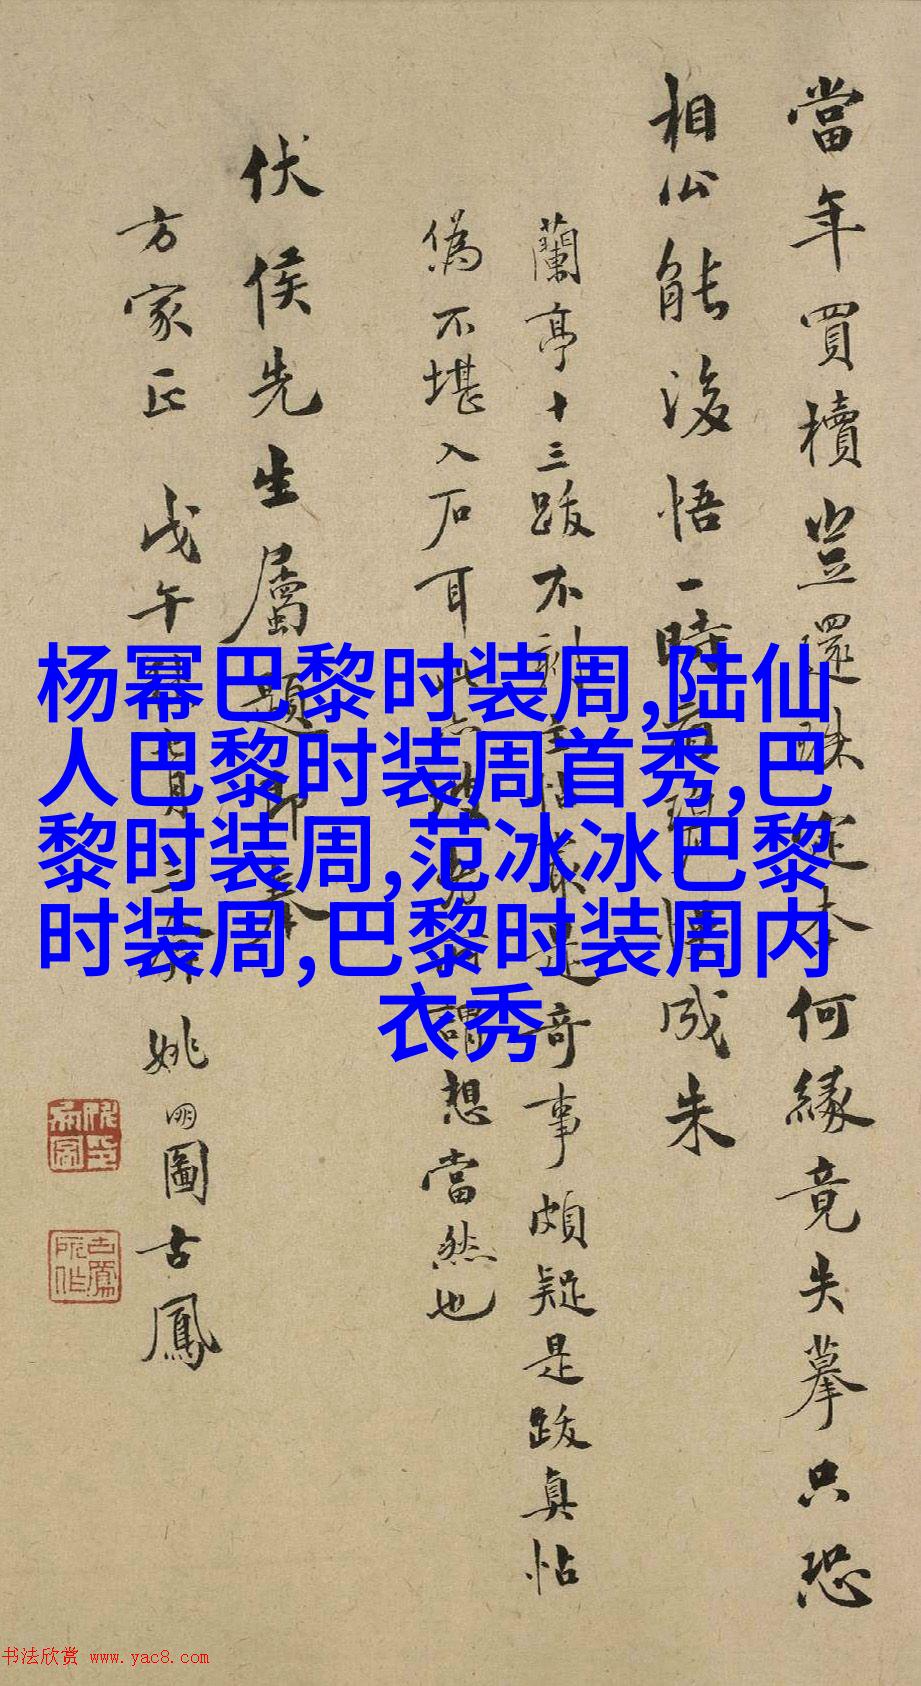 當年買櫝豈還珠定本何緣竟失摹只恐
相公能後悟一時成朱
蘭亭十三跋不刻帖是奇事頗疑是跋真帖
偽不堪入石耳此謂想當然也
伏侯先生屬題即奉
方家正 戊午七月 姚朙圖古鳳
杨幂巴黎时装周,陆仙
人巴黎时装周首秀,巴
黎时装周,范冰冰巴黎
时装周,巴黎时装周内
衣秀
书法欣赏 www.yac8.com